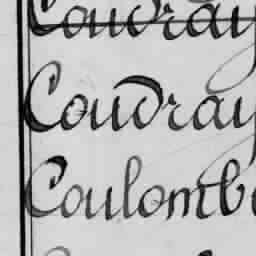 Coudray
Coudray
Coulomb